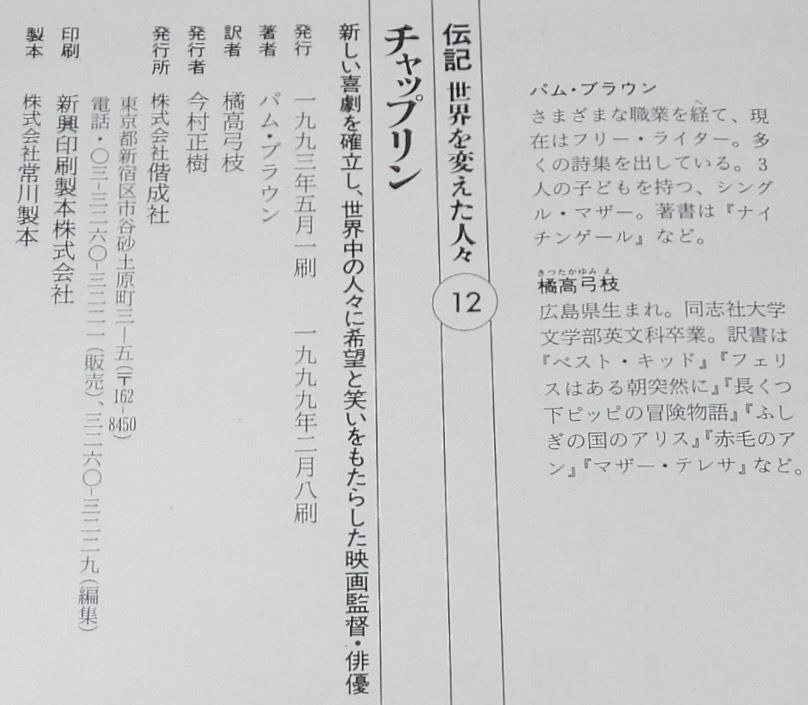 パム・ブラウン
さまざまな職業を経て、現
在はフリー・ライター。多
くの詩集を出している。3
人の子どもを持つ、シング
ル・マザー。著書は『ナイ
チンゲール』など。
きつたかゆみえ
橘高弓枝
広島県生まれ。同志社大学
文学部英文科卒業。訳書は
『ベスト・キッド』『フェリ
スはある朝突然に』『長くつ
下ピッピの冒険物語』『ふし
ぎの国のアリス』『赤毛のア
ン』『マザー・テレサ』など。
伝記 世界を変えた人々 12
チャップリン
新しい喜劇を確立し、世界中の人々に希望と笑いをもたらした映画監督・俳優
発行 一九九三年五月一刷 一九九九年二月八刷
著者 パム・ブラウン
訳者 橘高弓枝
発行者 今村正樹
発行所 株式会社偕成社
東京都新宿区市谷砂土原町三―五(〒162-8450)
電話・〇三―三二六〇―三二二一(販売)、三二六〇―三二二九(編集)
印刷 新興印刷製本株式会社
製本 株式会社常川製本